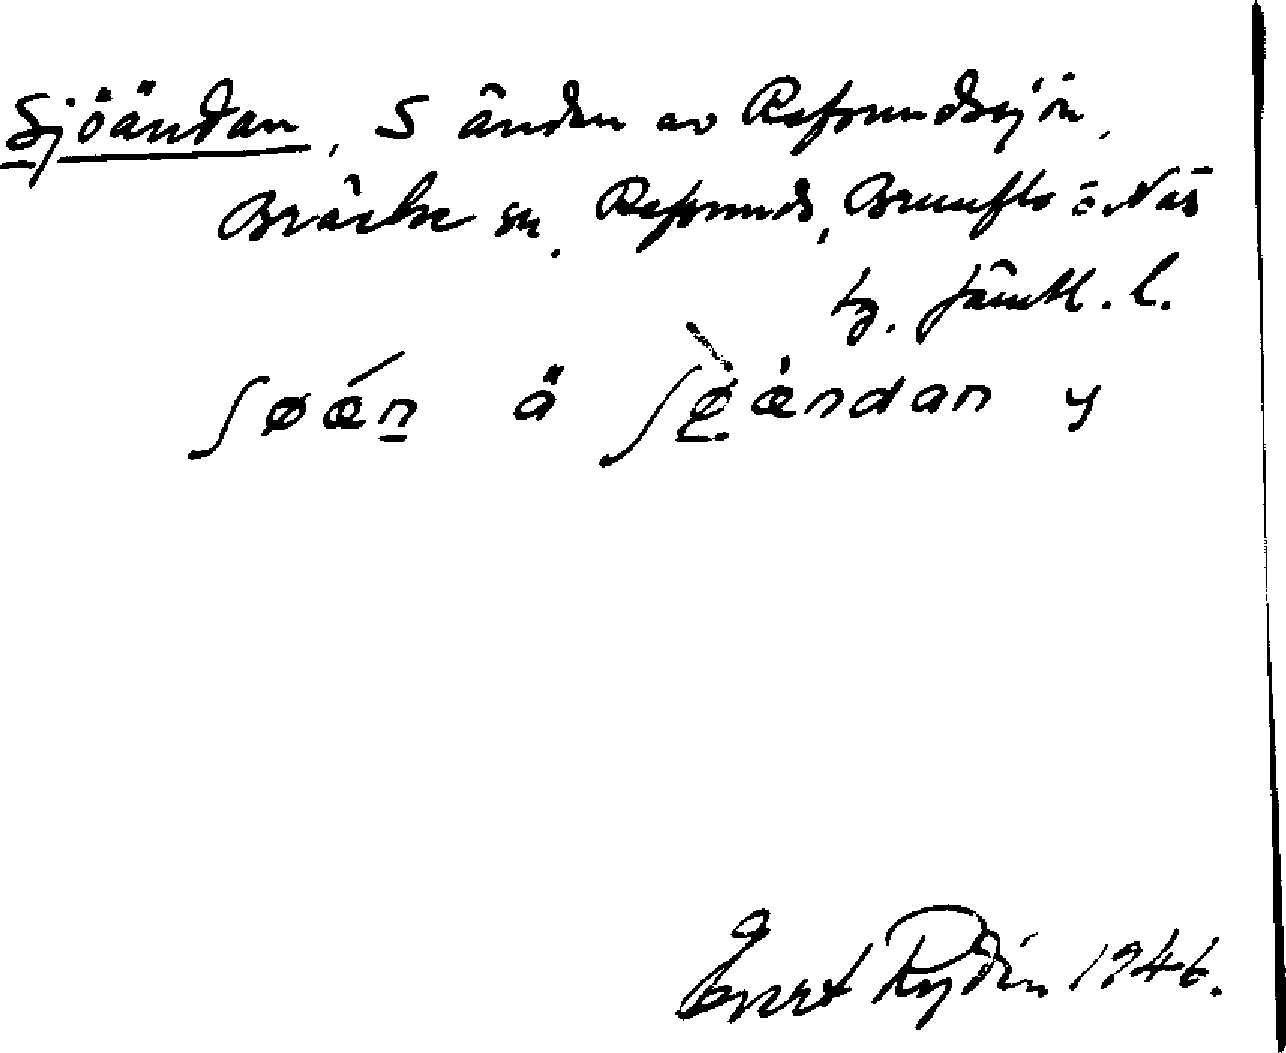 Sjöändan, S änden av Refsundssjön,
Bräcke sn, Refsunds, Brunflo o. Näs
tg. Jämtl. l.
ʃøǽn å ʃø̀ændan y
Evert Rydin 1946.